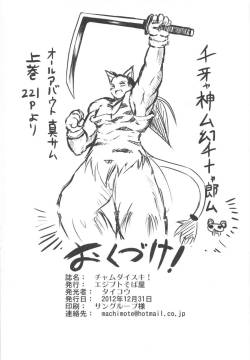 千牙神ム幻チャ郎ム
オールアバウト真サム
上巻
221Pより
おくづけ!
誌名： チャムダイスキ！
発行： エジプトそば屋
発光者： タイコウ
発行日： 2012年12月31日
印刷： サングループ様
連絡先： machimote@hotmail.co.jp